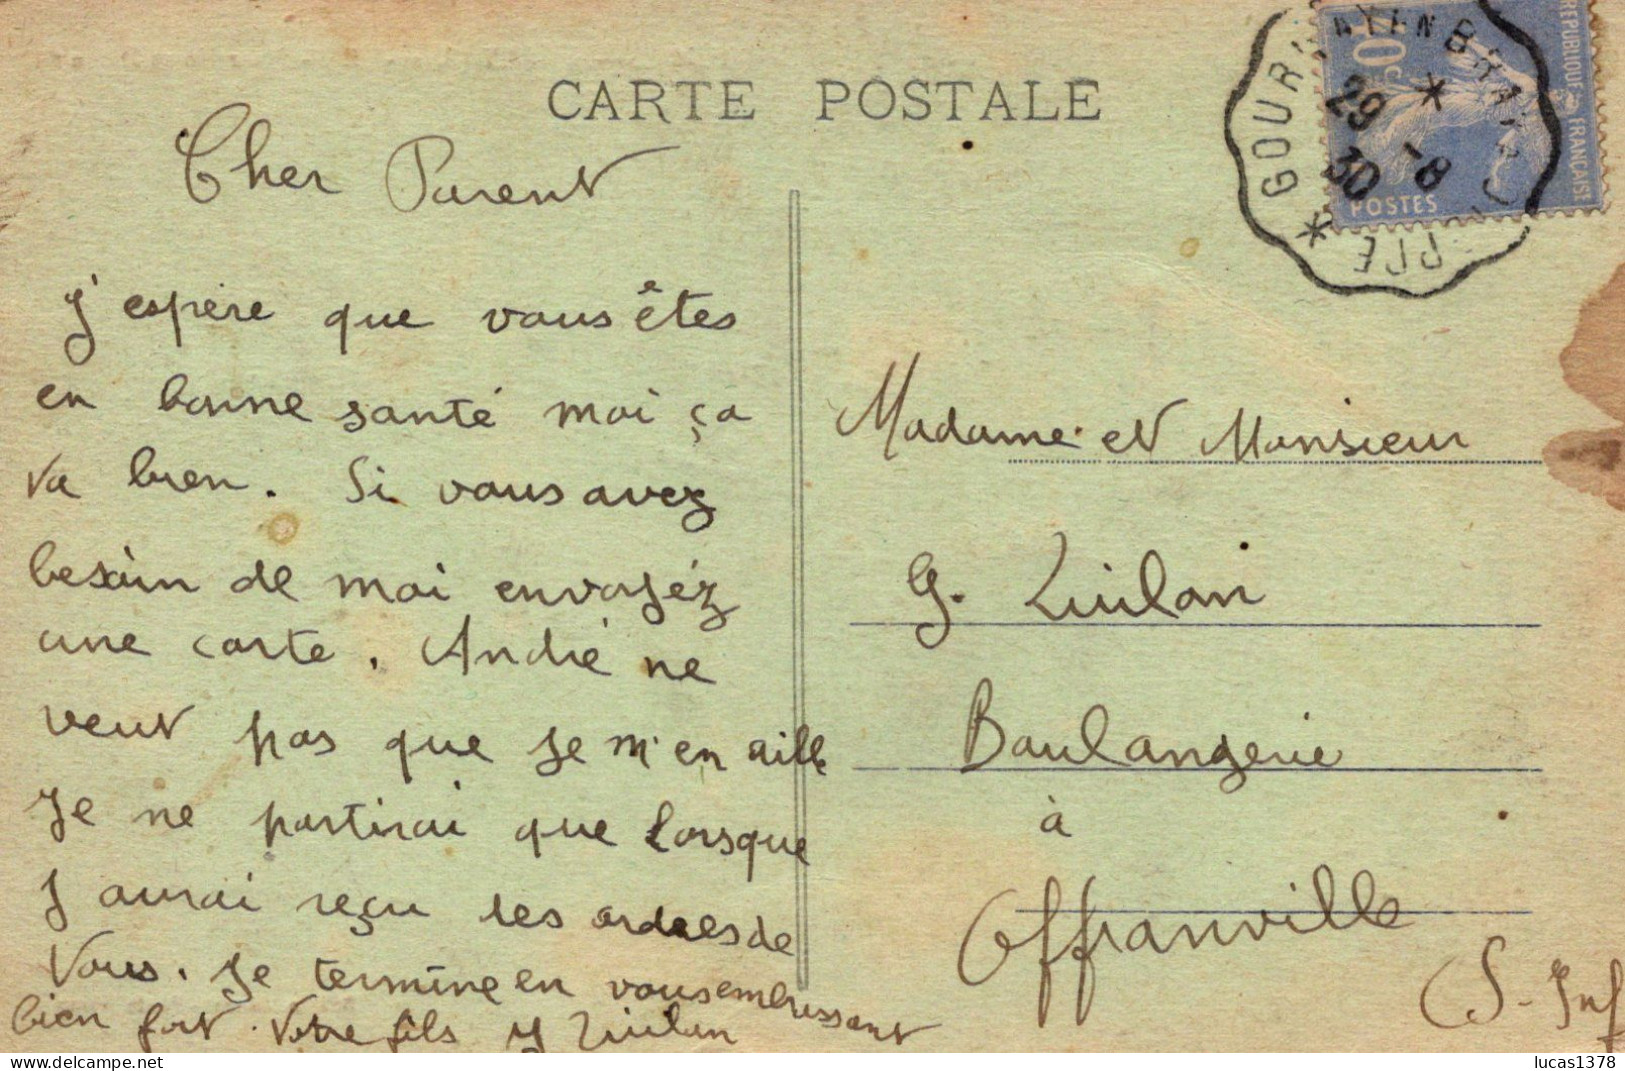 CARTE POSTALE
GOURNAY EN BRAY
29 -8
30
40c
POSTES
REPUBLIQUE FRANCAISE
Cher Parent
J'espère que vous êtes
en bonne santé moi ça
va bien. Si vous avez
besoin de moi envoyéz
une carte. André ne
veut pas que je m'en aille
Je ne partirai que lorsque
J aurai reçu les ordres de
Vous. Je termine en vous embrassant
bien fort. Votre fils
Madame et Monsieur
G.
Boulangerie
à
Offranville
S. Inf
lucas1378